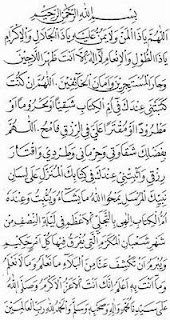 بِسْمِ اللهِ الرَّحْمٰنِ الرَّحِيْمِ
اَللّٰهُمَّ يَاذَا الْمَنِّ وَلَا يُمَنُّ عَلَيْهِ يَاذَا الْجَلَالِ وَالْاِكْرَامِ
يَاذَا الطَّوْلِ وَالْاِنْعَامِ لَا اِلٰهَ اِلَّا اَنْتَ ظَهْرَ اللَّاجِيْنَ
وَجَارَ الْمُسْتَجِيْرِيْنَ وَاَمَانَ الْخَائِفِيْنَ. اَللّٰهُمَّ اِنْ كُنْتَ
كَتَبْتَنِيْ عِنْدَكَ فِيْ اُمِّ الْكِتَابِ شَقِيًّا اَوْ مَحْرُوْمًا اَوْ
مَطْرُوْدًا اَوْ مُقْتَرًّا عَلَيَّ فِي الرِّزْقِ فَامْحُ. اَللّٰهُمَّ
بِفَضْلِكَ شَقَاوَتِيْ وَحِرْمَانِيْ وَطَرْدِيْ وَاِقْتَارَ
رِزْقِيْ وَاَثْبِتْنِيْ عِنْدَكَ فِيْ الْكِتَابِ الْمُنْزَلِ عَلٰى لِسَانِ
نَبِيِّكَ الْمُرْسَلِ يَمْحُوا اللهُ مَا يَشَاءُ وَيُثْبِتُ وَعِنْدَهُ
اُمُّ الْكِتَابِ اِلٰهِيْ بِالتَّجَلِّى الْاَعْظَمِ فِيْ لَيْلَةِ النِّصْفِ مِنْ
شَهْرِ شَعْبَانَ الْمُكَرَّمِ الَّتِيْ يُفْرَقُ فِيْهَا كُلُّ اَمْرٍ حَكِيْمٍ
وَيُبْرَمُ اَنْ تَكْشِفَ عَنَّا مِنَ الْبَلَاءِ مَا نَعْلَمُ وَمَا لَا نَعْلَمُ
وَمَا اَنْتَ بِهِ اَعْلَمُ اِنَّكَ اَنْتَ الْاَعَزُّ الْاَكْرَمُ وَصَلَّى اللهُ
عَلٰى سَيِّدِنَا مُحَمَّدٍ وَاٰلِهِ وَصَحْبِهِ وَسَلَّمَ وَالْحَمْدُ لِلّٰهِ رَبِّ الْعَالَمِيْنَ